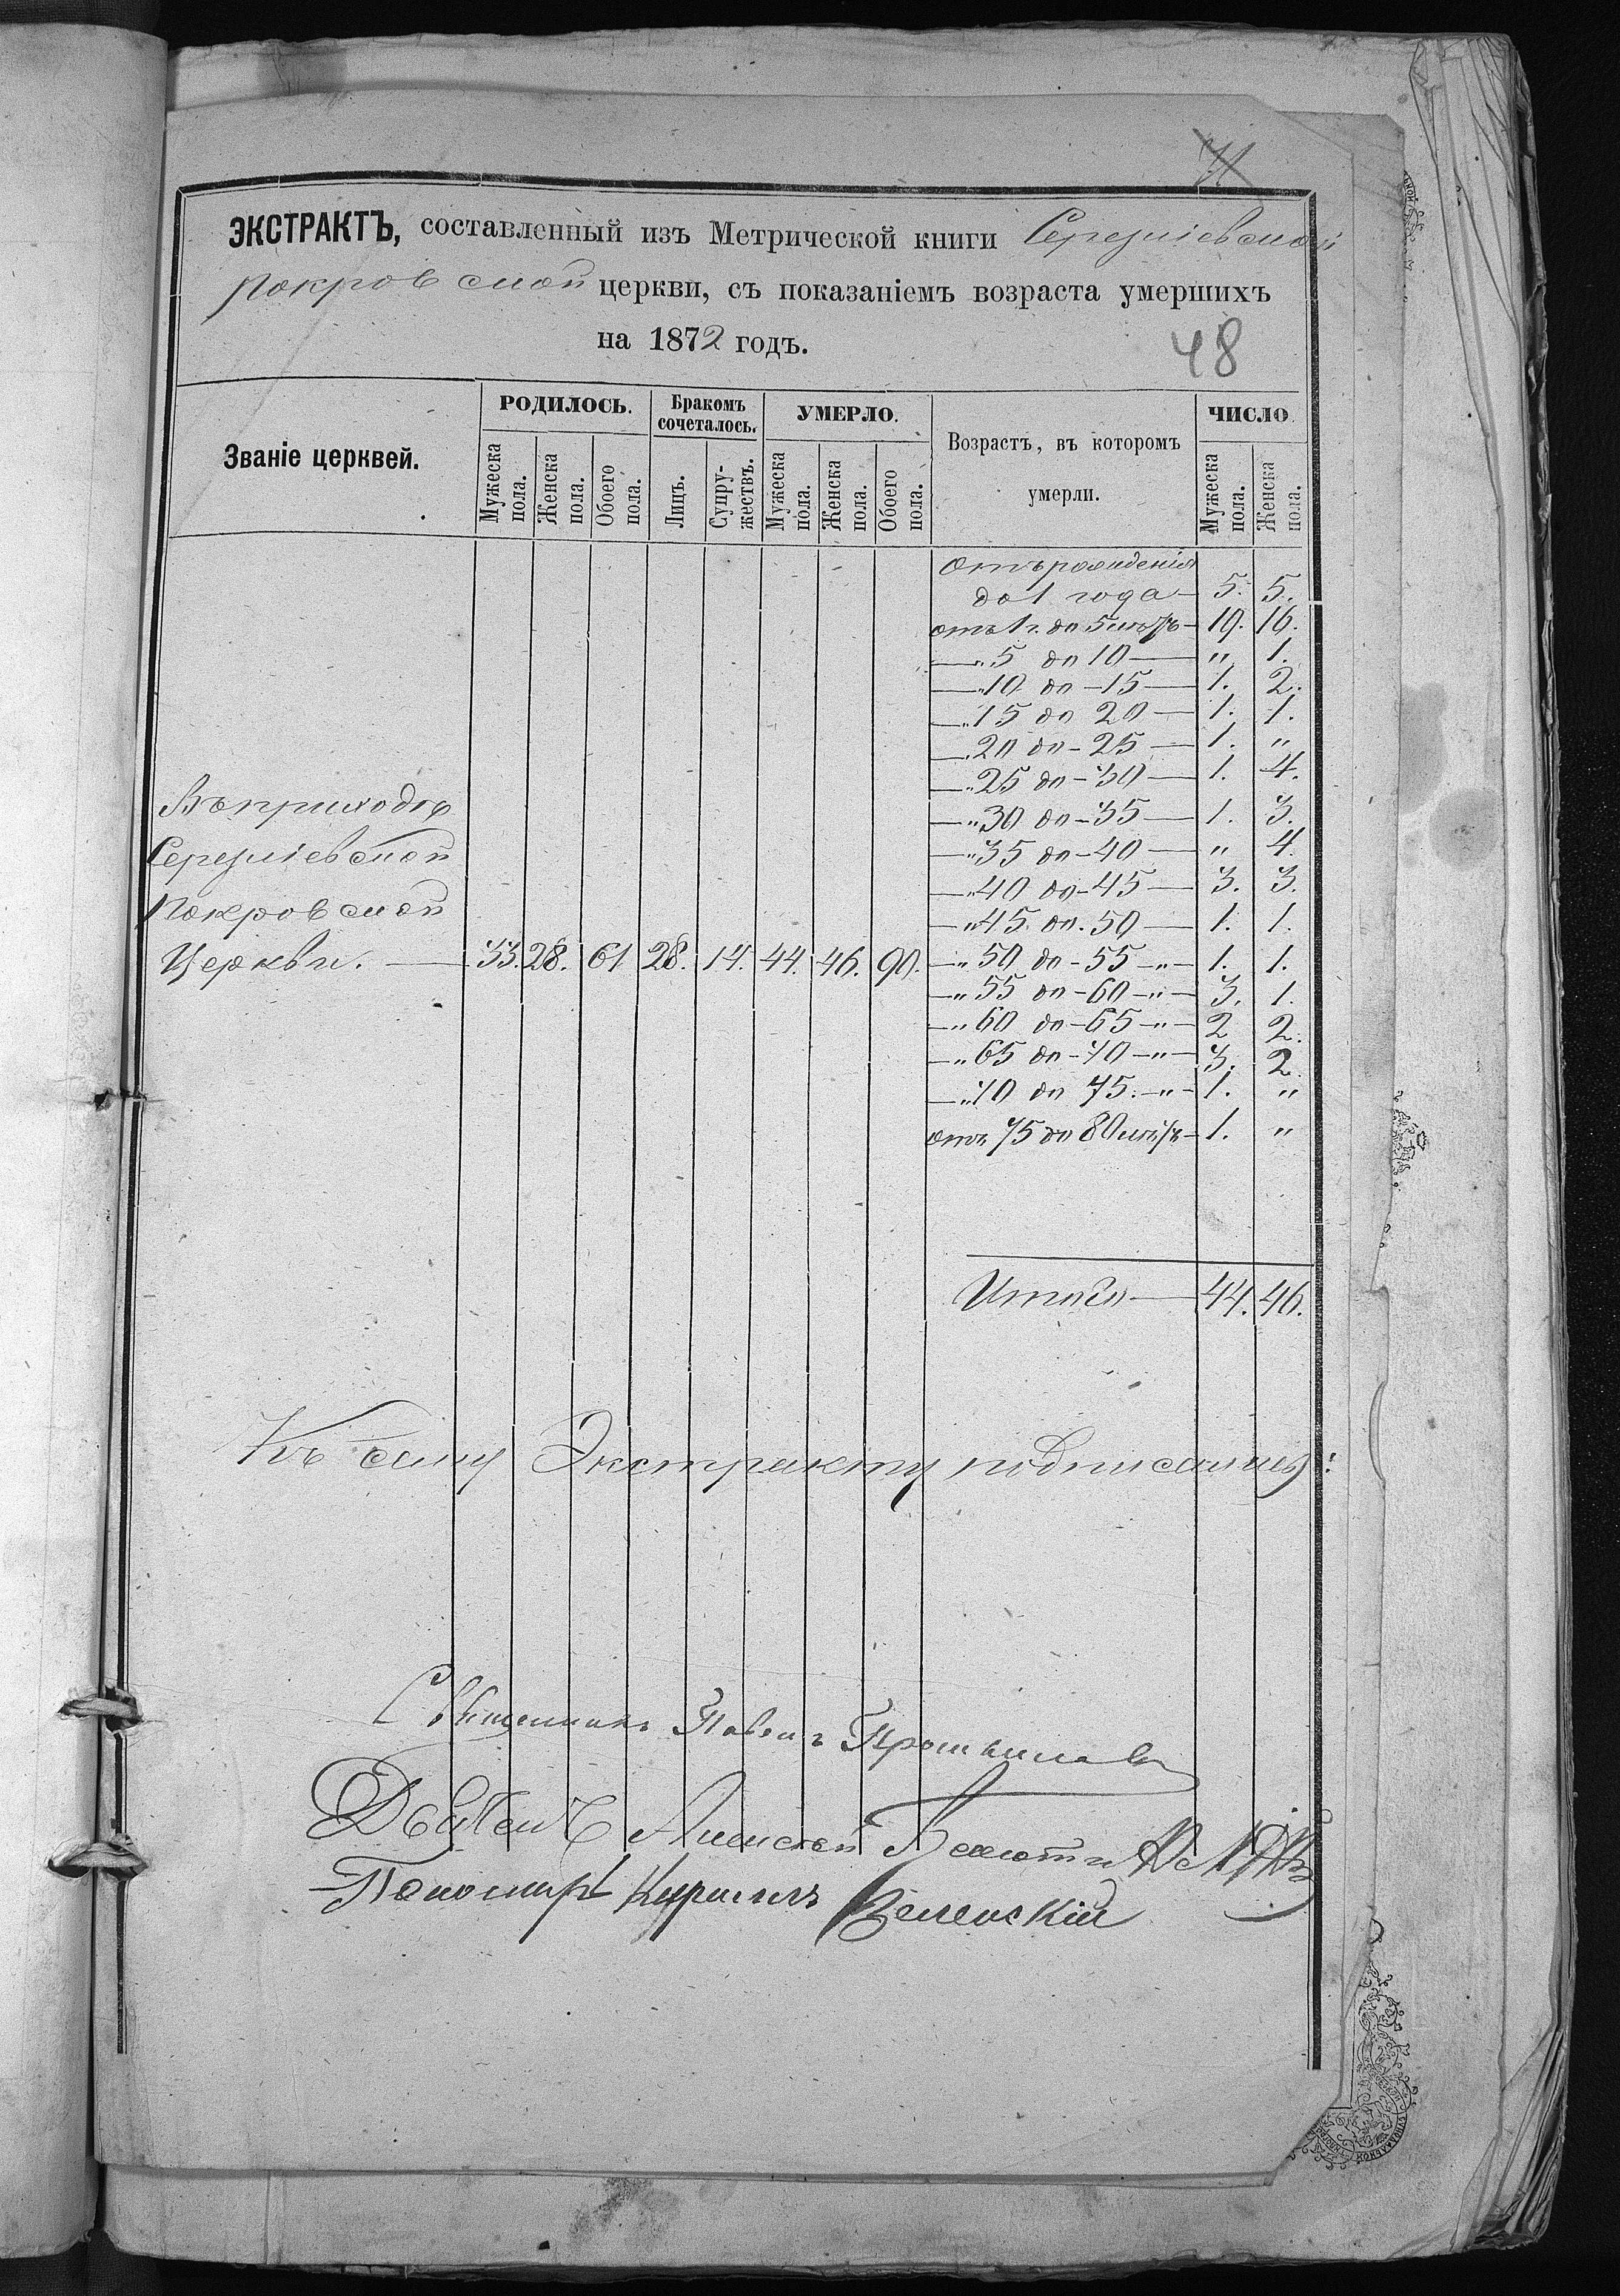 71
ЭКСТРАКТЪ, составленный изъ Метрической книги Березпіевской
Покровской церкви, съ показаніемъ возраста умершихъ
на 1872 годъ.
48
Званіе церквей.
РОДИЛОСЬ.
Мужеска пола.
Женска пола.
Обоего пола.
Бракомъ сочеталось.
Лицъ.
Супру-жествъ.
УМЕРЛО.
Мужеска пола.
Женска пола.
Обоего пола.
Возрастъ, въ которомъ умерли.
ЧИСЛО
Мужеска пола.
Женска пола.
Отъ рожденія
до 1 года — 5. 5.
отъ 1 г. до 5 лѣтъ — 19. 16.
— " 5 до 10 — " 1.
— " 10 до — 15 — 1. 2.
— " 15 до 20 — 1. 1.
— " 20 до — 25 — 1. "
— " 25 до — 30 — 1. 4.
— " 30 до — 35 — 1. 3.
— " 35 до — 40 — " 4.
— " 40 до — 45 — 3. 3.
— " 45 до. 50 — 1. 1.
— " 50 до — 55 — " — 1. 1.
— " 55 до — 60 — " — 3. 1.
— " 60 до — 65 — " — 2 2.
— " 65 до — 70 — " — 3. 2.
— " 70 до 75. — " — 1. "
отъ 75 до 80 лѣтъ — 1. "
Въ приходѣ
Покровской
Церкви. — 33. 28. 61 28. 14. 44. 46. 90.
Итого — 44. 46.
Къ сему Экстракту подписались:
Священникъ Павелъ
Дьячекъ Алексѣй
Пономарь Кириллъ Зеленскій